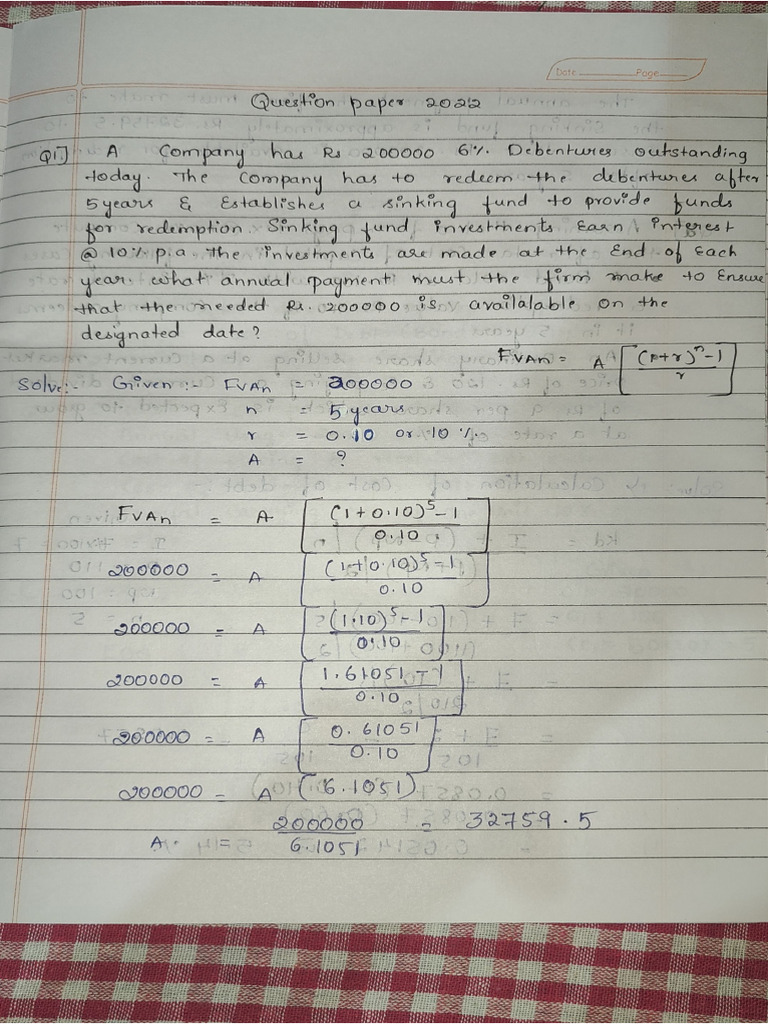 Date Page
Question paper 2022
Q1] A Company has Rs 200000 6% Debentures outstanding
today. The Company has to redeem the debentures after
5 years & Establishes a sinking fund to provide funds
for redemption. Sinking fund investments Earn interest
@ 10% p.a. the investments are made at the End of Each
year. what annual payment must the firm make to Ensure
that the needed Rs. 200000 is availalable on the
designated date?
FVAn = A [(1+r)^n - 1 / r]
Solve:- Given :- FVAn = 200000
n = 5 years
r = 0.10 or 10 %.
A = ?
FVAn = A [(1+0.10)^5 - 1 / 0.10]
200000 = A [(1+0.10)^5 - 1 / 0.10]
200000 = A [(1.10)^5 - 1 / 0.10]
200000 = A [1.61051 - 1 / 0.10]
200000 = A [0.61051 / 0.10]
200000 = A (6.1051)
A = 200000 / 6.1051 = 32759.5